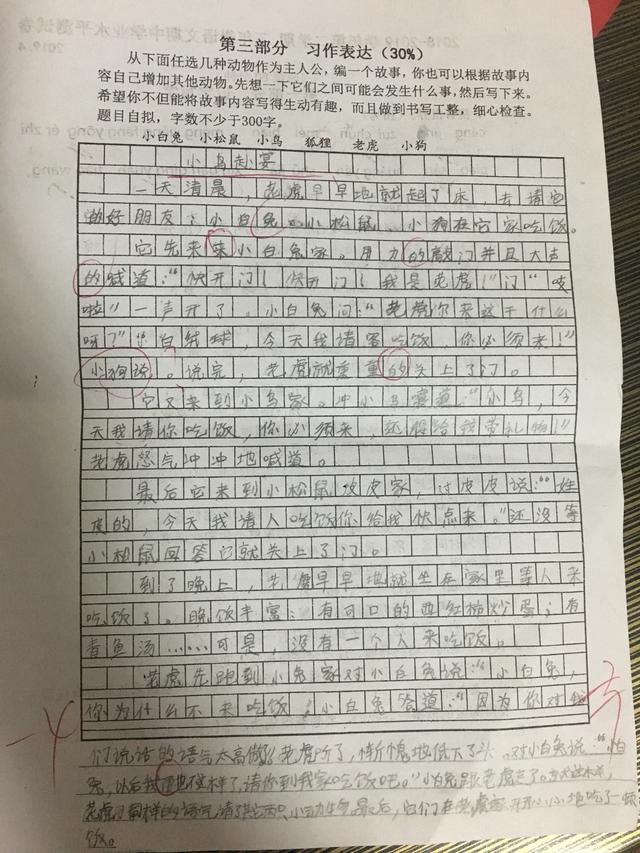 第三部分 习作表达（30%）
从下面任选几种动物作为主人公，编一个故事，你也可以根据故事内
容自己增加其他动物。先想一下它们之间可能会发生什么事，然后写下来。
希望你不但能将故事内容写得生动有趣，而且做到书写工整，细心检查。
题目自拟，字数不少于300字。
小白兔 小松鼠 小鸟 狐狸 老虎 小狗
小鸟赴宴
一天清晨，老虎早早地就起了床，去请它
的好朋友：小白兔、小松鼠、小狗在它家吃饭。
它先来来小白兔家。用力的敲门并且大声
的喊道：“快开门！快开门！我是老虎！”门“吱
啦”一声开了。小白兔问：“老虎你来这干什么
呀？”“白绒球，今天我请客吃饭，你必须来！”
小狗说。说完，老虎就重重的关上了门。
它又来到小鸟家。冲小鸟道：“小鸟，今
天我请你吃饭，你必须来，还得给我带礼物！”
老虎怒气冲冲地喊道。
最后它来到小松鼠皮皮家，过皮皮说：“姓
皮的，今天我请人吃饭你给我快点来。”还没等
小松鼠回答它就关上了门。
到了晚上，老虎早早地就坐在家里等人来
吃饭了。晚饭丰富：有可口的西红柿炒蛋；有
青鱼汤……可是，没有一个人来吃饭。
老虎先跑到小兔家对小白兔说：“小白兔，
你为什么不来吃饭，小白兔答道：“因为你对我
们说话的语气太高傲。”老虎听了，惭愧地低下了头。对小白兔说：“小白
兔，以后我再也不这样了，请你到我家吃饭吧。”小白兔跟老虎走了。
老虎用同样的语气请了
最后，它们在老虎家开开心心地吃了一顿
饭。